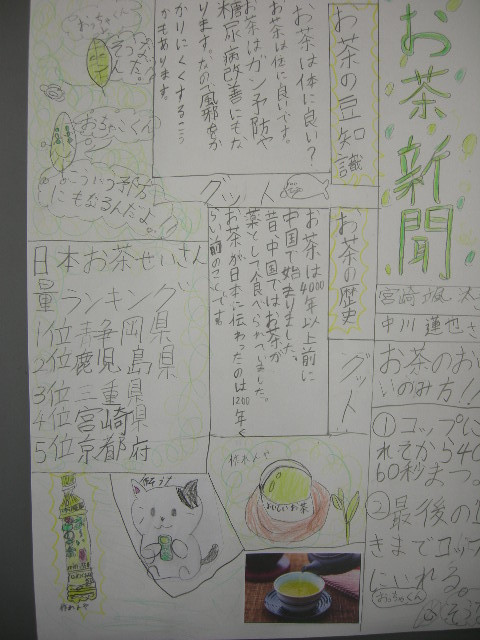 お茶新聞
宮崎颯太
中川蓮也さ
お茶の豆知識
お茶は体に良い？
お茶は体に良いです。
お茶はガン予防や
糖尿病改善にもな
ります。なので風邪をか
かりにくくするこう
かもあります。
おっちゃくん
そうなんだ。
おちゃこくん
こういう予方
にもなるんだよ。
グット
お茶の歴史
お茶は4000年以上前に
中国で始まりました。
昔、中国ではお茶が
薬として食べられていました。
お茶が日本に伝わったのは1200年く
らい前のことです
日本お茶せいさん
量ランキング
1位静岡県
2位鹿児島県
3位三重県
4位宮崎県
5位京都府
グット
お茶のおい
いのみ方!!
①コップに
れてから40
60秒まつ。
②最後の1
きまでコッ
にいれる。
おっちゃくん
おいしいお茶